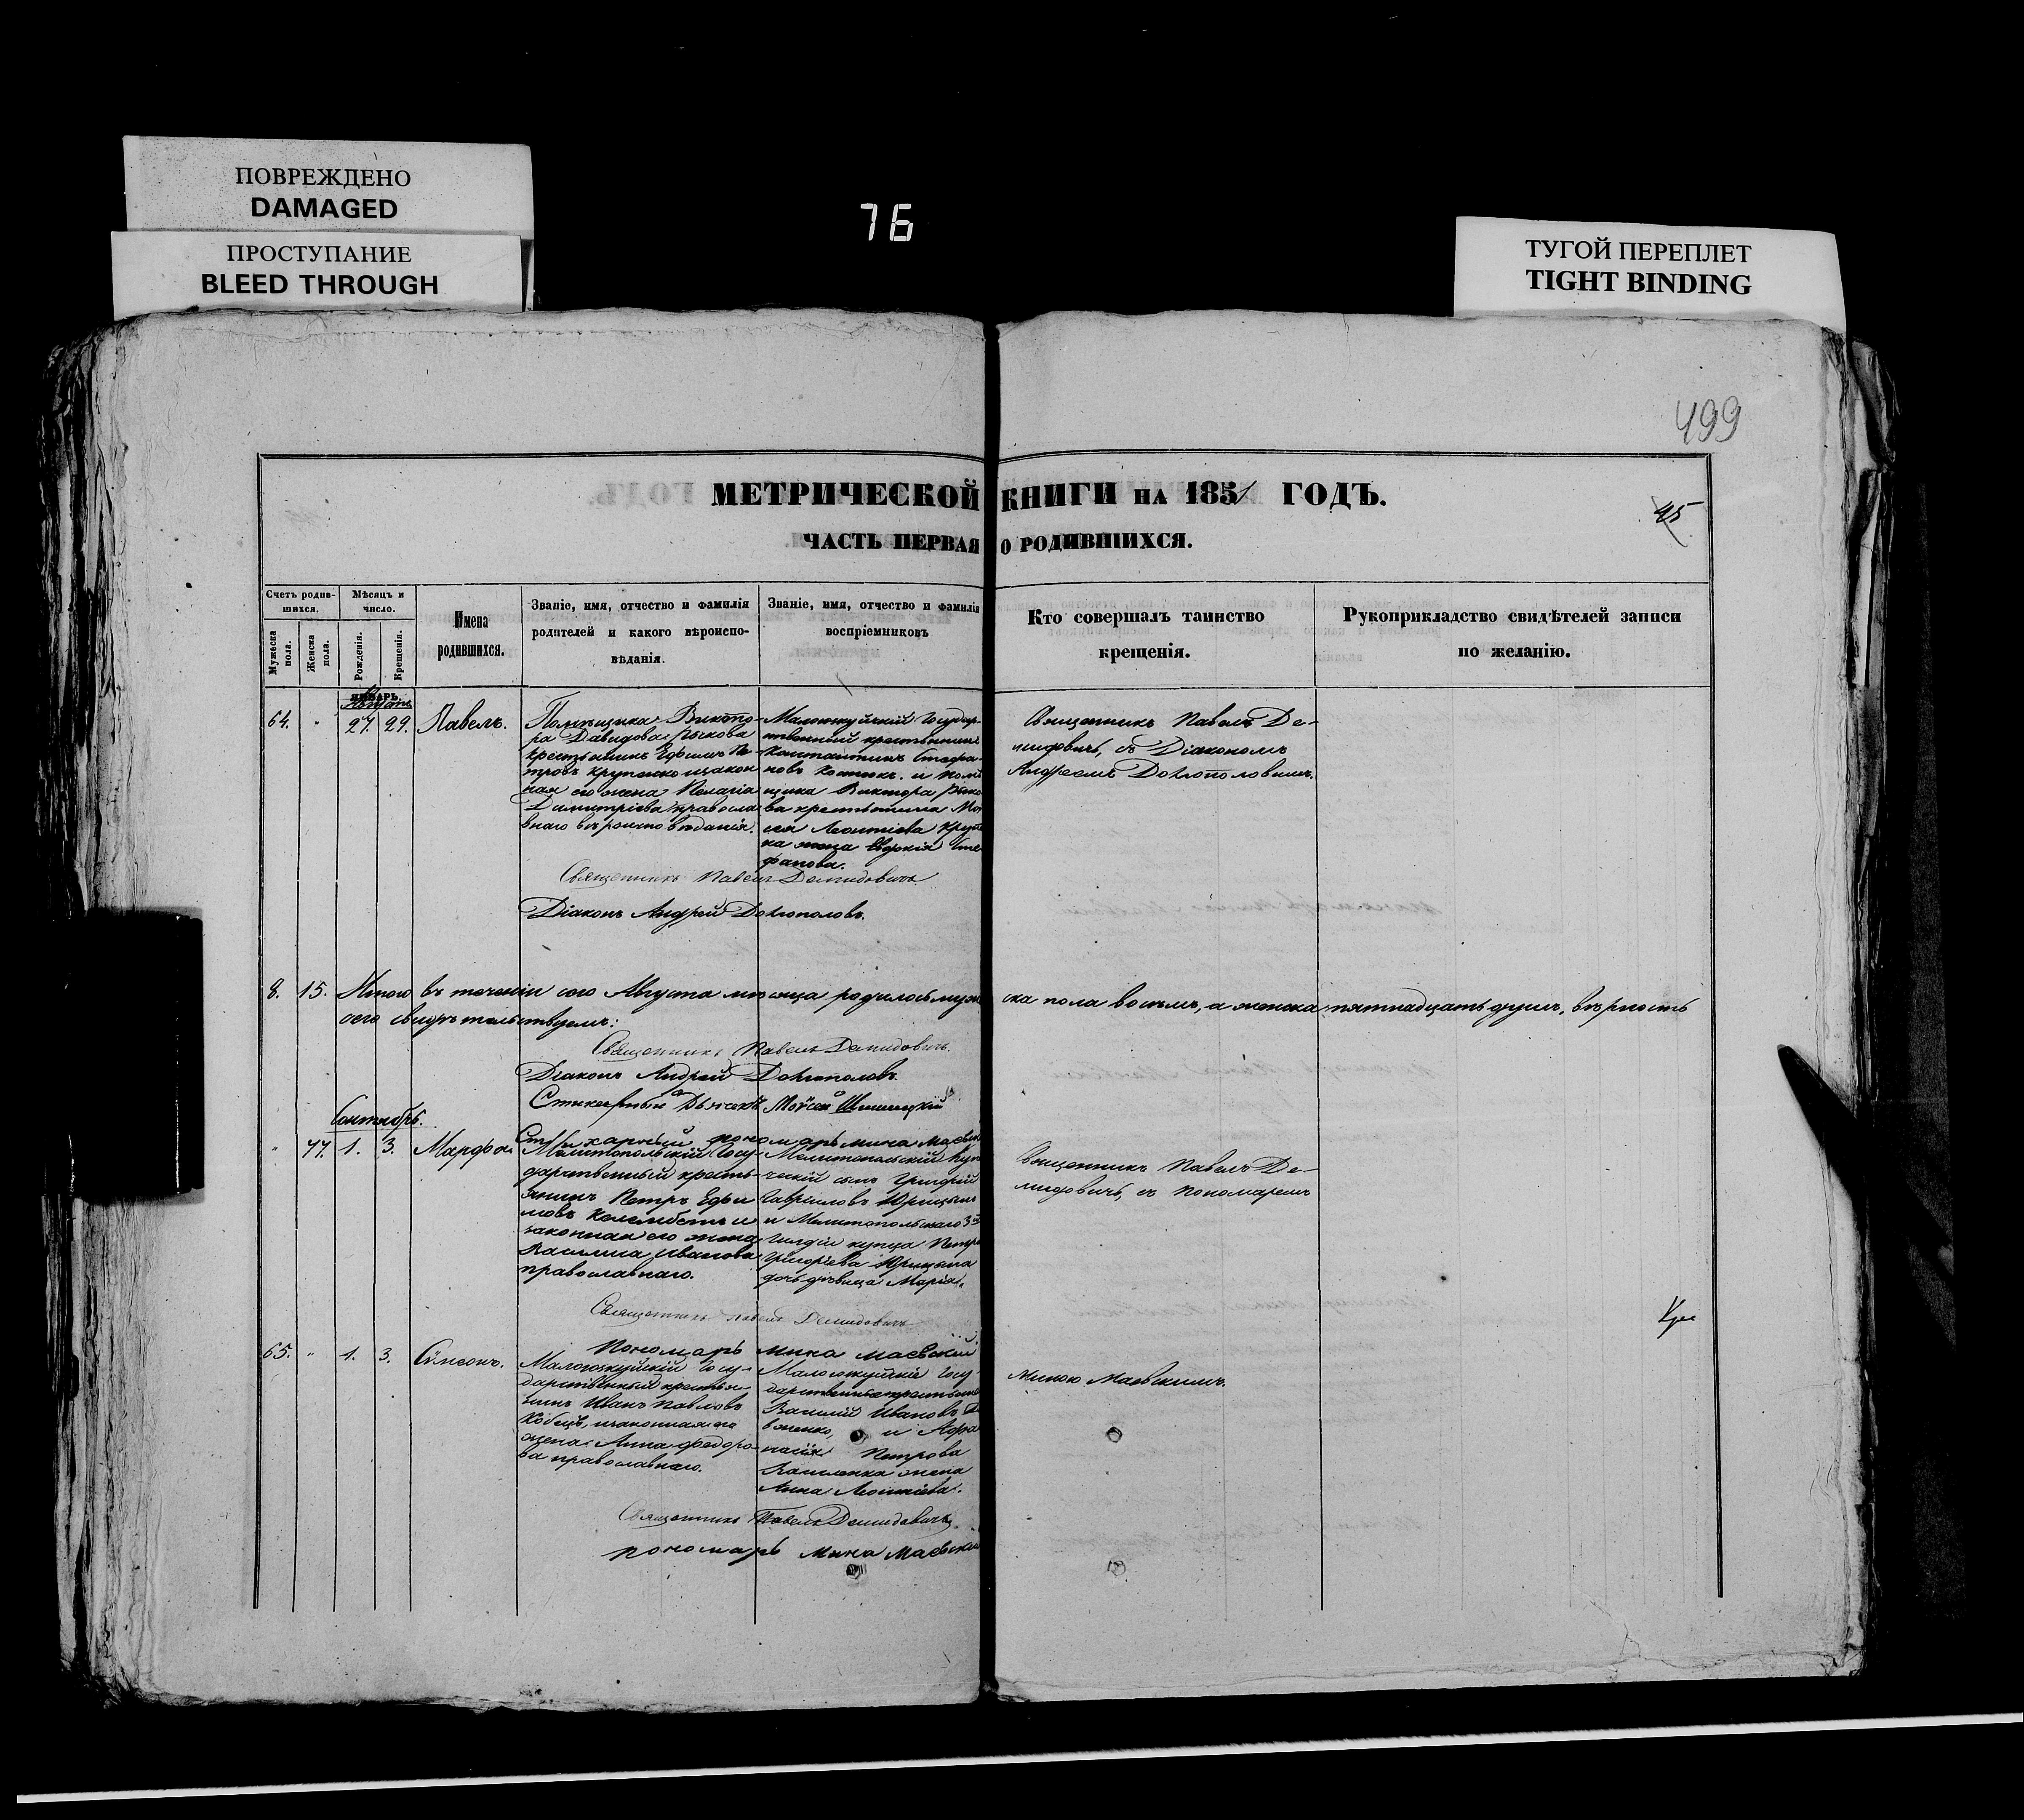 ПОВРЕЖДЕНО
DAMAGED
ПРОСТУПАНИЕ
BLEED THROUGH
76
ТУГОЙ ПЕРЕПЛЕТ
TIGHT BINDING
499
МЕТРИЧЕСКОЙ КНИГИ НА 1851 ГОДЪ.
45
ЧАСТЬ ПЕРВАЯ О РОДИВШИХСЯ.
Счетъ родив-
шихся.
Мужеска пола.
Женска пола.
Мѣсяцъ и
число.
Рожденія.
Крещенія.
Имена
родившихся.
Званіе, имя, отчество и фамилія
родителей и какого вѣроиспо-
вѣданія.
Званіе, имя, отчество и фамилія
воспріемниковъ
Кто совершалъ таинство
крещенія.
Рукоприкладство свидѣтелей записи
по желанію.
ЯНВАРЬ.
64. " 27. 29. Павелъ.
Помѣщика Викто-
ра Давидова Рыкова
крестьянинъ Ефимъ Пе
тровъ Крупско и закон
ная его жена Пелагіа
Димитріева православ
внаго вѣроисповѣданія.
государ-
ственный крестьянинъ
Константинъ Стефа-
новъ и помѣ
щика Виктора Рыко
ва крестьянина Мо
сея Леонтіева Круп
ка жена Евдокія Сте
фанова.
Священникъ Павелъ Де-
мидовичъ, съ Діакономъ
Андреемъ Долгополовымъ.
Священникъ Павелъ Демидовичъ
Діаконъ Андрей Долгополовъ.
8. 15. Итого въ теченіи сего Августа мѣсяца родилось муже ска пола восемь, а женска пятнадцать душъ, вѣрность
сего свидѣтельствуемъ:
Священникъ Павелъ Демидовичъ.
Діаконъ Андрей Долгополовъ.
Стихарный Дьячекъ Моѵсей
Стихарный пономарь Мина Маевскій
Сентябрь.
" 77. 1. 3. Марфа.
Мелитопольскій Госу-
дарственный кресть-
янинъ Петръ Ефи
мовъ Келембетъ и
законная его жена
Василиса Иванова
православнаго.
Мелитопольскій Куп
ческій сынъ Григорій
Гавріиловъ Юрицынъ
и Мелитопольскаго 3й
Гилдіи купца Петра
Григоріева Юрицына
дочь дѣвица Марія.
Священникъ Павелъ Де-
мидовичъ, съ Пономаремъ
Священникъ Павелъ Демидовичъ
Пономарь Мина Маевскій
65. " 1. 3. Сѵмеонъ.
Госу-
дарственный крестья-
нинъ Иванъ Павловъ
Кобецъ, и законная его
жена Анна Федоро-
ва православнаго.
Госу-
дарственные крестьяне
Василій Ивановъ
и Афа
насія Петрова
Василенка жена
Анна Леонтіева.
Миною Маевскимъ.
Священникъ Павелъ Демидовичъ
пономарь Мина Маевскій